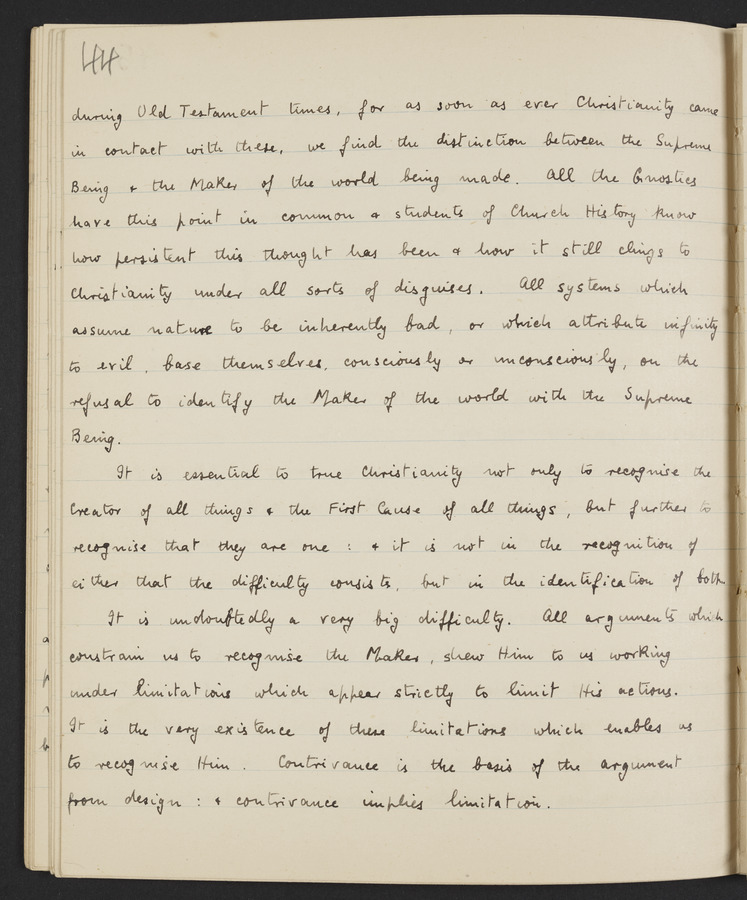 44
during Old Testament times, for as soon as ever Christianity came
in contact with these, we find the distinction between the Supreme
Being & the Maker of the world being made. All the Gnostics
have this point in common & students of Church History know
how persistent this thought has been & how it still clings to
Christianity under all sorts of disguises. All systems which
assume nature to be inherently bad, or which attribute infinity
to evil, base themselves, consciously or unconsciously, on the
refusal to identify the Maker of the world with the Supreme
Being.
It is essential to true Christianity not only to recognise the
Creator of all things & the First Cause of all things, but further to
recognise that they are one : & it is not in the recognition of
either that the difficulty consists, but in the identification of both.
It is undoubtedly a very big difficulty. All arguments which
constrain us to recognise the Maker, shew Him to us working
under limitations which appear strictly to limit His actions.
It is the very existence of these limitations which enables us
to recognise Him. Contrivance is the basis of the argument
from design : & contrivance implies limitation.